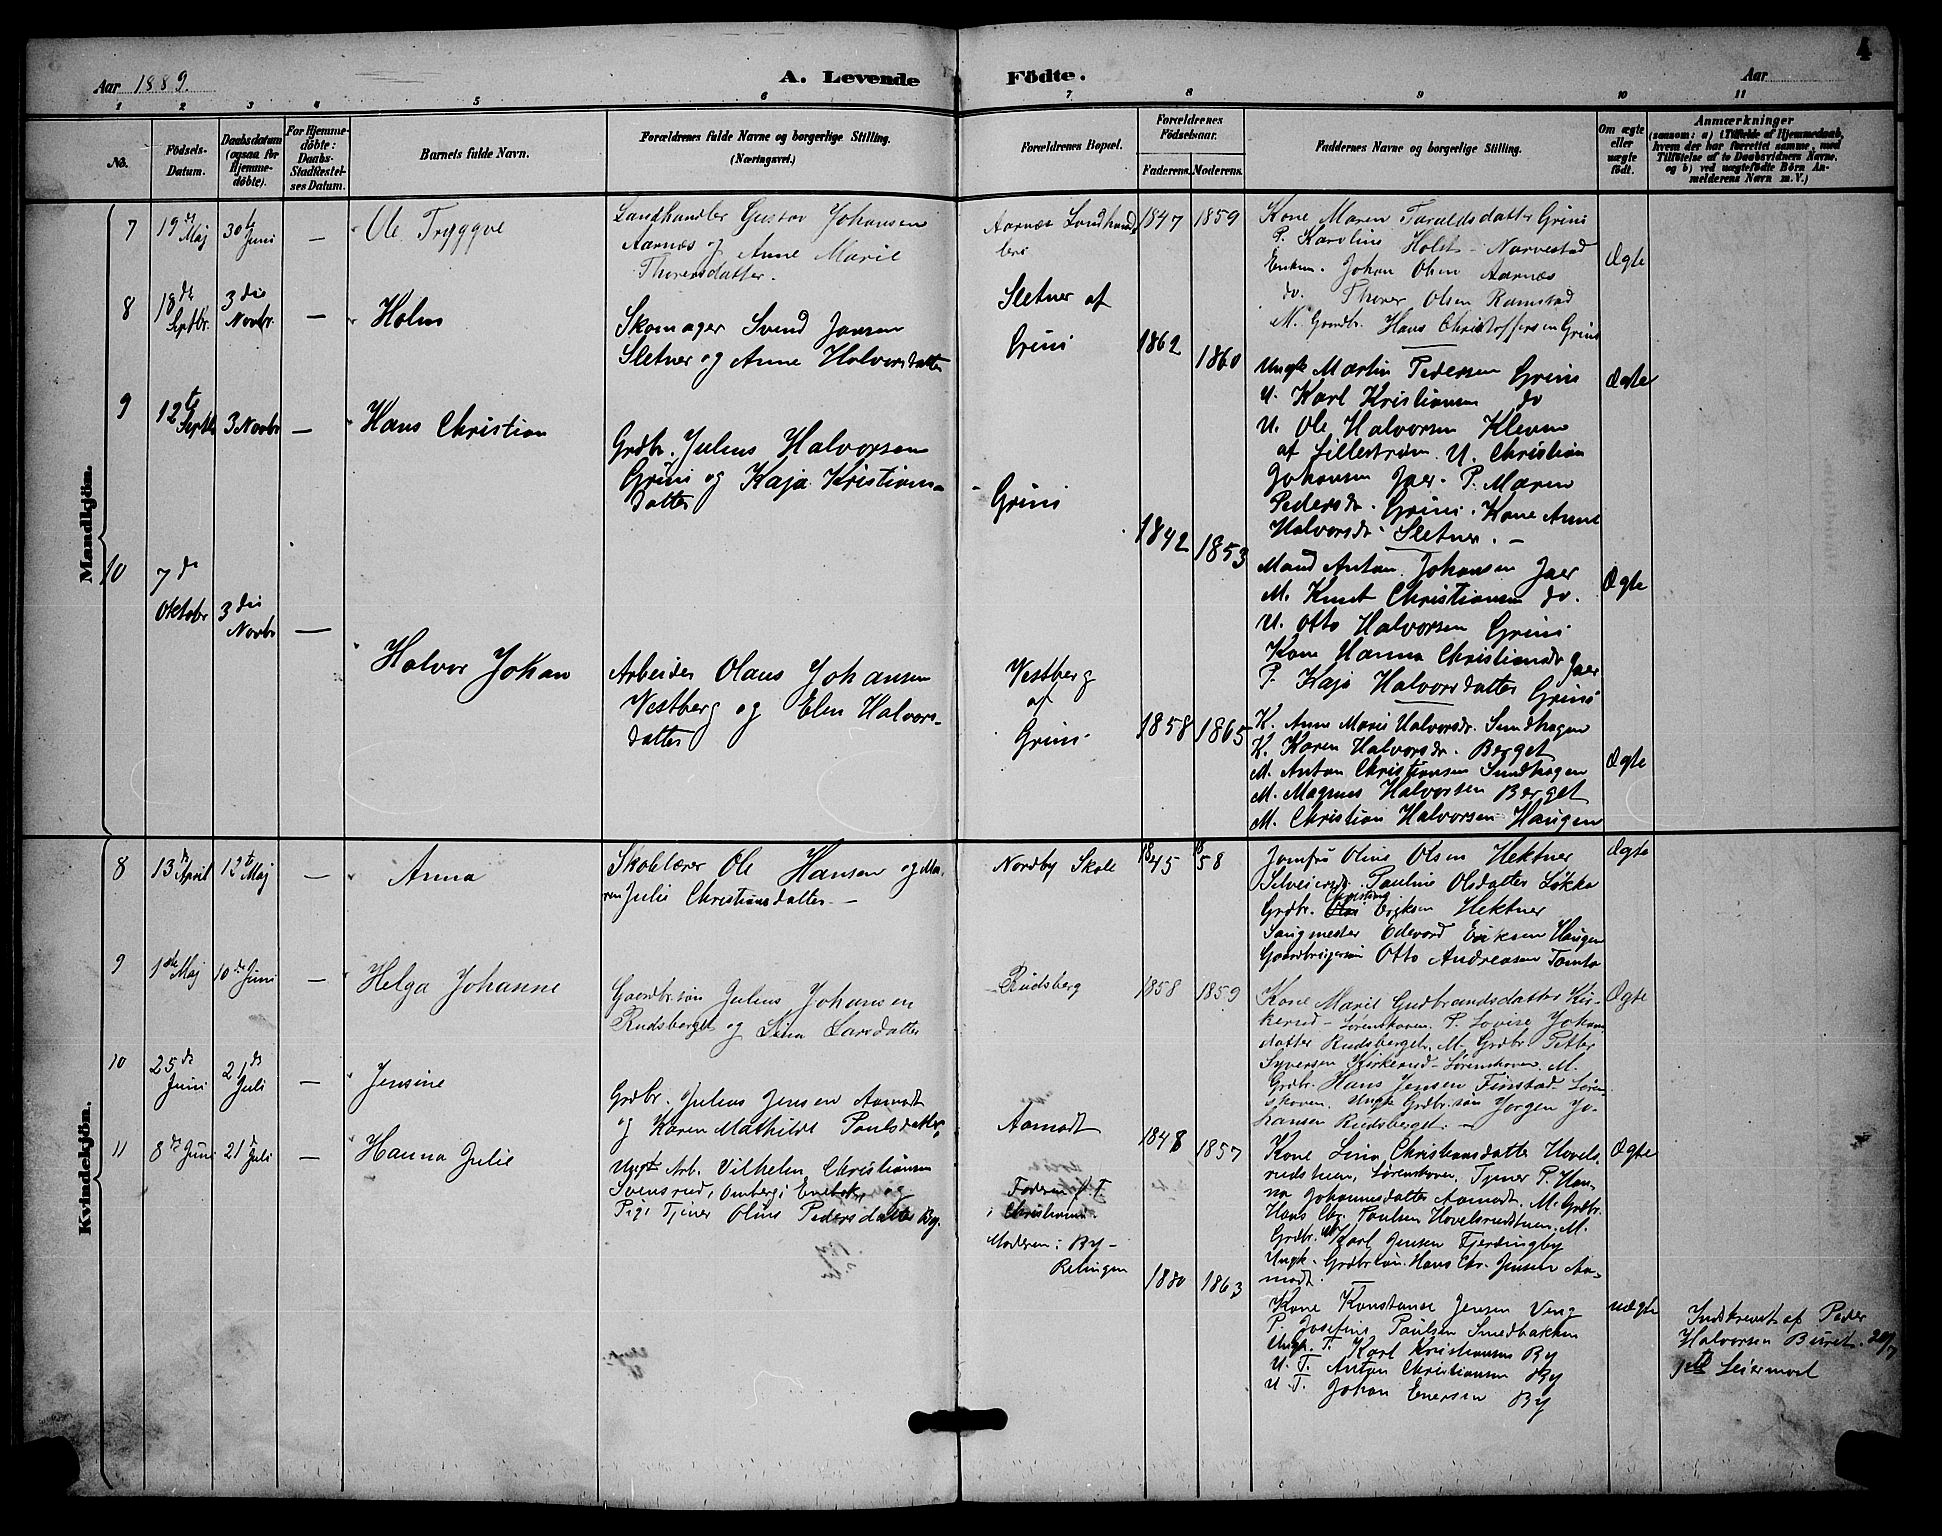 4
Aar 1889.
A. Levende Födte.
Aar
1 2 3 4 5 6 7 8 9 10 11
No.
Födsels-Datum.
Daabsdatum (ogsaa for Hjemmedöbte).
For Hjemmedöbte: Daabs-Stadfæstelses Datum.
Barnets fulde Navn.
Forældrenes fulde Navne og borgerlige Stilling. (Næringsvei.)
Forældrenes Bopæl.
Forældrenes Födselsaar.
Faderens. Moderens.
Faddernes Navne og borgerlige Stilling.
Om ægte eller uægte födt.
Anmærkninger
(saasom: a) i Tilfælde af Hjemmedaab, hvem der har forrettet samme, med Tilföielse af to Daabsvidners Navne, og b) ved uægtefödte Börn Anmelderens Navn m. V.)
Mandkjön.
7 19de Maj 30te Juni — Ole Tryggve
Landhandler Gustav Johansen
Aarnæs og Anne Marie
Thorersdatter.
Aarnæs Landhandleri
1847 1859
Kone Maren Taraldsdatter Grini
P. Karoline Holst - Narvestad
Enkem. Johan Olsen Aarnæs
do. Thorer Olsen Ramstad
M. Grndbr. Hans Christoffersen Grini
Ægte
8 18de Septbr. 3die Novbr. — Holm
Skomager Svend Jansen
Sletner og Anne Halvorsdatter
Sletner af
Grini
1862 1860
Ungk Martin Pedersen Grini
U. Karl Kristiansen do
U. Ole Halvorsen Kleven
af Lillestrøm. U. Christian
Johansen Jaer. P. Maren
Pedersdr. Grini. Kone Anne
Halvorsdr Sletner. —
Ægte
9 12te Septbr 3 Novbr — Hans Christian
Grdbr. Julius Halvorsen
Grini og Kaja Kristians-
datter
Grini
1842 1853
Mand Anton Johansen Jaer
M. Knut Christiansen do.
U. Otto Halvorsen Grini
Kone Hanna Christiansdr Jaer
P. Kaja Halvorsdatter Grini
Ægte
10 7de Oktobr 3die Novbr — Halvor Johan
Arbeider Olaus Johansen
Vestberg og Elen Halvors-
datter
Vestberg
af
Grini
1858 1865
K. Anne Marie Halvorsdr. Sundhagen
K. Karen Halvorsdr. Berget
M. Anton Christiansen Sundhagen
M. Magnus Halvorsen Berget
M. Christian Halvorsen Haugen
Ægte
Kvindekjön.
8 13de April 12te Maj — Anna
Skolelærer Ole Hansen og Ma-
ren Julie Christiansdatter. —
Nordby Skole
1845 1858
Jomfru Oline Olsen Hektner
Selveierd. Pauline Olsdatter Løkka
Grdbr. Eriksen Hektner
Saugmester Edevard Eriksen Haugen
Gaardbrugersøn Otto Andreasen Tomta
Ægte
9 1ste Maj 10de Juni — Helga Johanne
Gaardbr.søn Julius Johansen
Rudsberget og Lina Larsdatter
Rudsberg
1858 1859
Kone Marie Gudbrandsdatter Kir-
kerud - Lørenskoven. P. Lovise Johans
datter Rudsberget. M. Grdbr. Petter
Syversen Kirkerud - Lørenskoven. M.
Grdbr. Hans Jensen Finstad - Løren-
skoven. Ungk Grdbr.søn Jørgen Jo-
hansen Rudsberget. —
Ægte
10 25de Juni 21de Juli — Jensine
Grdbr. Julius Jensen Aamodt
og Karen Mathilde Paulsdatter
Aamodt
1848 1857
Kone Lina Christiansdatter Hovels-
rudstuen, Lørenskoven, Tjener P. Han-
na Johannesdatter Aamodt. M. Grdbr.
Hans Chr. Paulsen Hovelsrudstuen. M.
Grdbr. Karl Jensen Fjerdingby
Ungk. Grdbrsøn. Hans Chr. Jensen Aa-
modt.
Ægte
11 8de Juni 21de Juli — Hanna Julie
Ungk. Arb. Vilhelm Christiansen
Svensrud, Omberg i Enebak,
Pige Tjener Oline Pedersdatter By.
Faderen f. T.
i Christiania.
Moderen: By -
Relingen
1860 1863
Kone Konstanse Jensen Ving
P. Josefine Paulsen Smedbakken
Ungk. T. Karl Kristiansen By
U. T. Anton Christiansen By
U T. Johan Enersen By
Uægte
Indskrevet af Peder
Halvorsen Buret. 20/7
Leiermoel